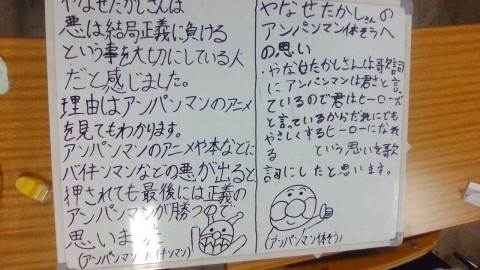 やなせたかしさんは
悪は結局正義に負ける
という事を大切にしている人
だと感じました。
理由はアンパンマンのアニメ
を見てもわかります。
アンパンマンのアニメや本などに
バイキンマンなどの悪が出ると
押されても最後には正義の
アンパンマンが勝つので
思いました
(アンパンマン バイキンマン)
やなせたかしさんの
アンパンマン体そうへ
の思い
・やなせたかしさんは歌詞
にアンパンマンは君さと言っ
ているので君はヒーローズ
と言っているからだれにでも
やさしくするヒーローになれ
る という思いを歌
詞にしたと思います。
(アンパンマン体そう)